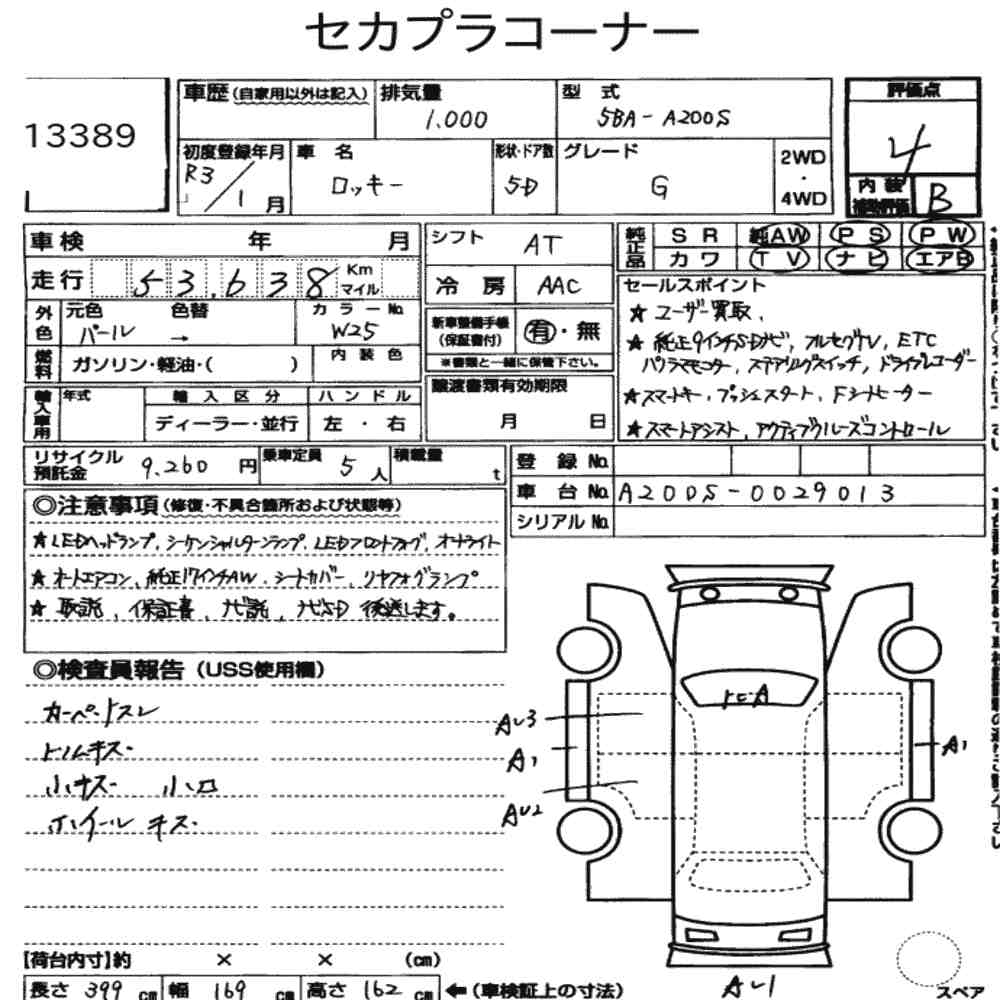 セカプラコーナー
13389
車歴 (自家用以外は記入) 排気量 1.000 型式 5BA-A200S 評価点 4
初度登録年月 R3/1月 車名 ロッキー 形状・ドア数 5D グレード G 2WD・4WD 内装補助評価 B
車検 年 月
走行 53,638 Km マイル
外色 元色 パール 色替 → カラーNo. W25
燃料 ガソリン・軽油・( ) 内装色
輸入車用 年式 輸入区分 ディーラー・並行 ハンドル 左・右
シフト AT
冷房 AAC
新車整備手帳(保証書付) 有・無
※書類と一緒に保管下さい。
譲渡書類有効期限
月 日
純正品 SR 純AW PS PW
カワ TV ナビ エアB
セールスポイント
★ ユーザー買取、
★ 純正9インチSDナビ、フルセグTV、ETC
パノラマモニター、ステアリングスイッチ、ドライブレコーダー
★スマートキー、プッシュスタート、Fシートヒーター
★スマートアシスト、アクティブクルーズコントロール
リサイクル預託金 9,260円 乗車定員 5人 積載量 t
登録No.
車台No. A200S-0029013
シリアルNo.
◎注意事項 (修復・不具合箇所および状態等)
★LEDヘッドランプ、シーケンシャルターンランプ、LEDフロントフォグ、オートライト
★オートエアコン、純正17インチAW、シートカバー、リヤフォグランプ
★ 取説、保証書、ナビ説、ナビSD 後送します。
◎検査員報告 (USS使用欄)
カーペットスレ
トリムキズ
小キズ 小凹
ホイールキズ
トビA
AU3
A1
AU2
A1
AU1
スペア
【荷台内寸】約 × × (cm)
長さ 399 cm 幅 169 cm 高さ 162 cm ←(車検証上の寸法)